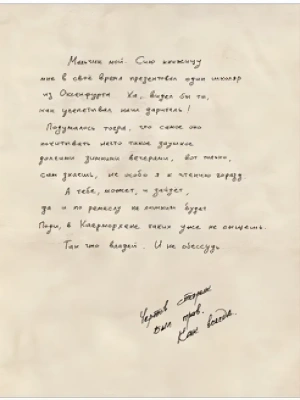 Мальчик мой. Сию книжицу
мне в своё время презентовал один школяр
из Оксенфурта. Ха, видел бы ты,
как улепетывал наш даритель!
Подумалось тогда, что самое оно
почитывать нечто такое заумное
долгими зимними вечерами, вот только,
сам знаешь, не особо я к чтению горазд.
А тебе, может, и зайдёт,
да и по ремеслу не лишним будет
Поди, в Каэр Морхене таких уже не сыщешь.
Так что владей. И не обессудь
Чертов старик
был прав.
Как всегда.